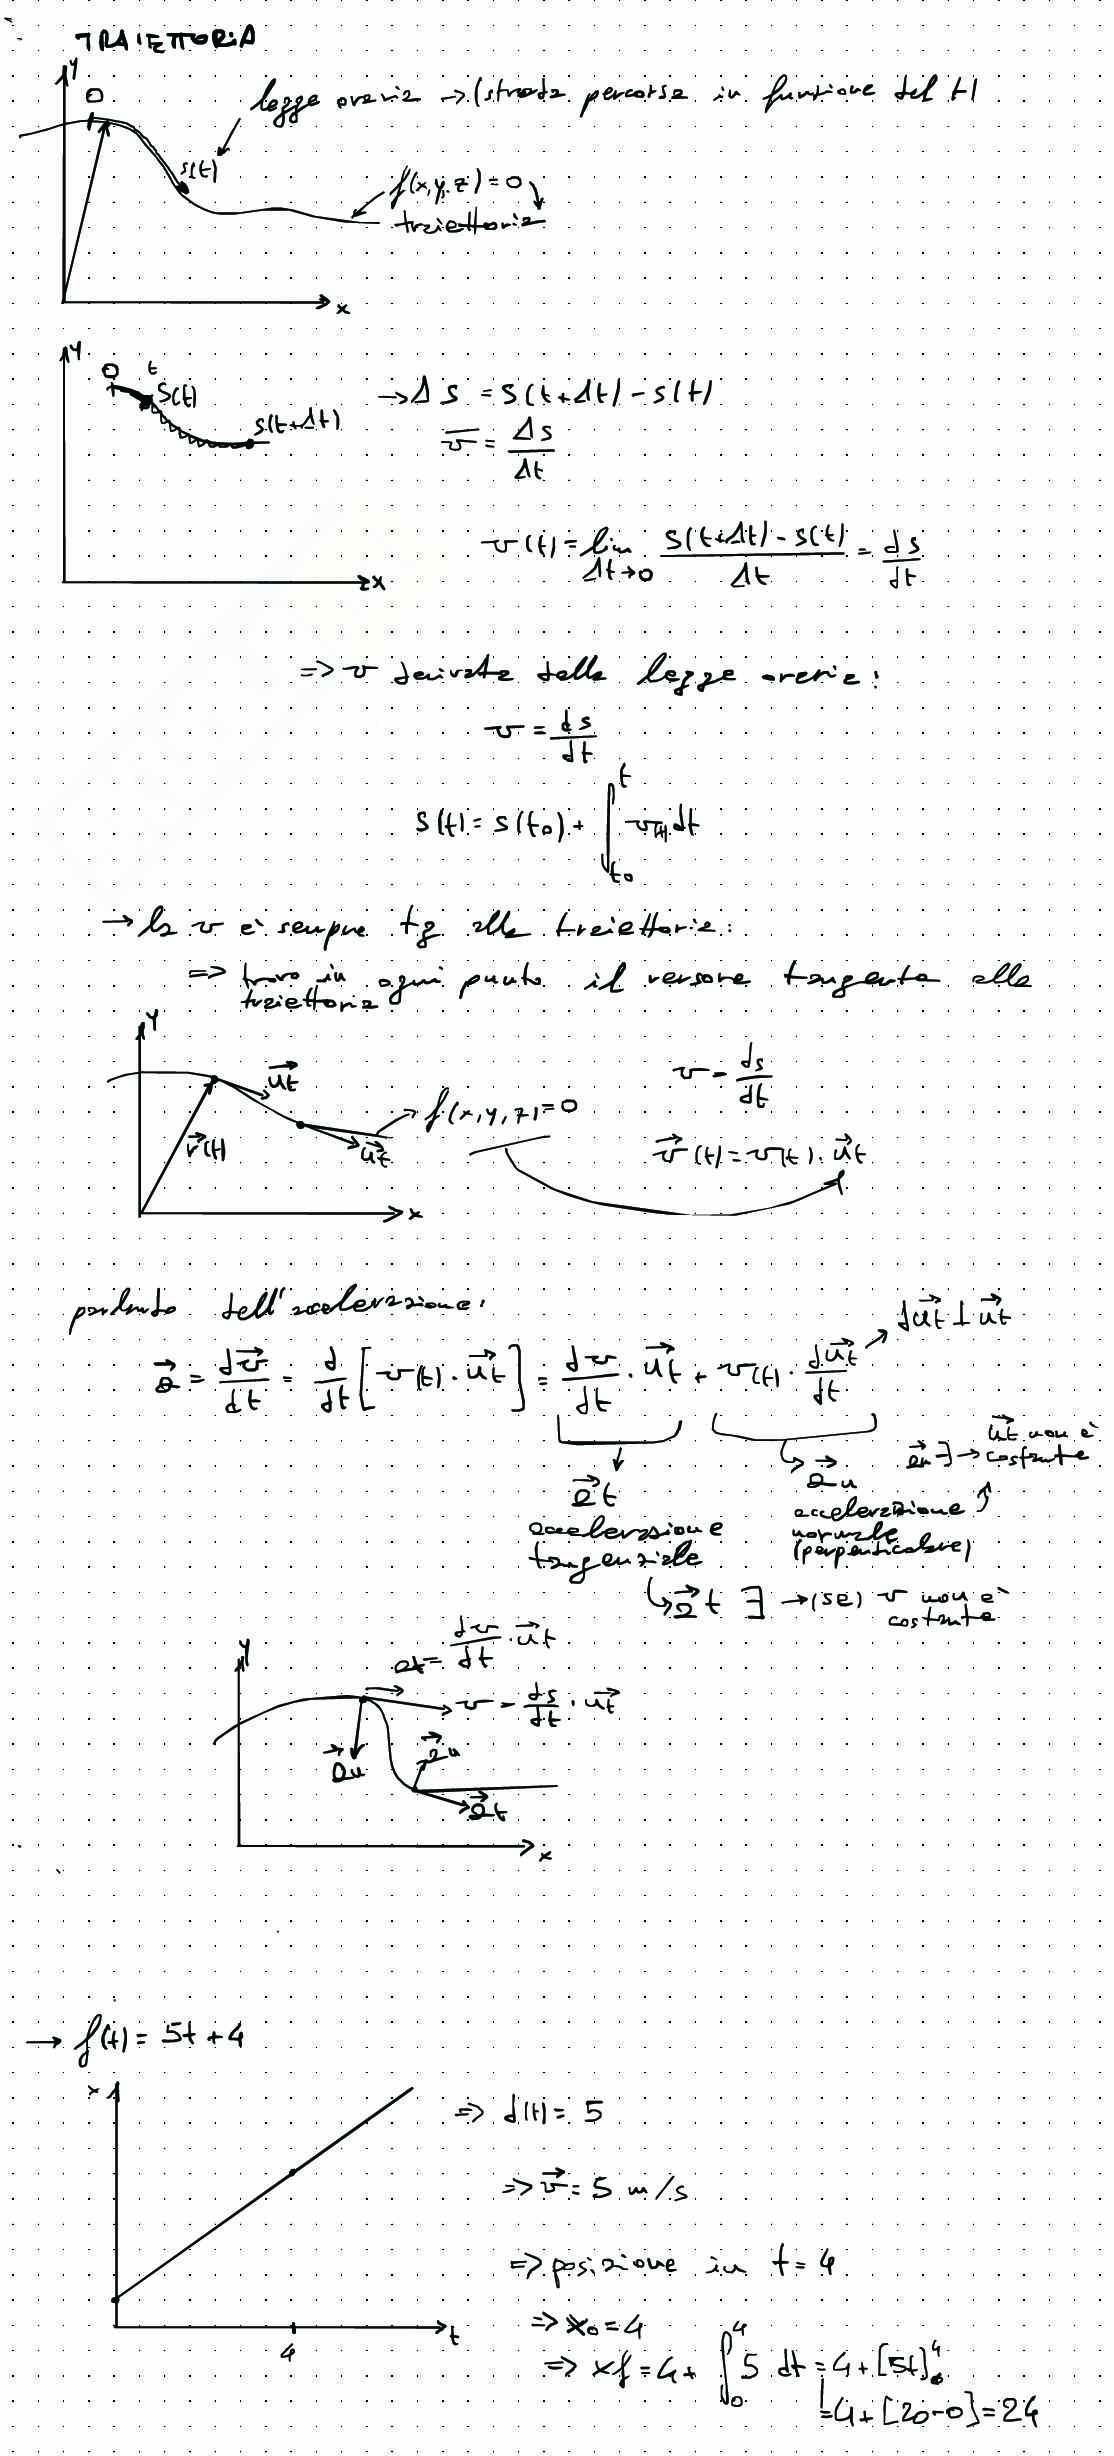 TRAIETTORIA
y
O
legge oraria → (strada percorsa in funzione del t)
s(t)
f(x,y,z)=0
traiettoria
x
y
O t
S(t)
s(t+Δt)
→ Δs = s(t+Δt) - s(t)
v̅ = Δs/Δt
x
v(t) = lim Δt→0 (s(t+Δt) - s(t))/Δt = ds/dt
=> v derivata della legge oraria:
v = ds/dt
s(t) = s(t₀) + ∫ t₀ t v(t) dt
→ la v è sempre tg alla traiettoria:
=> trovo in ogni punto il versore tangente alla
traiettoria
y
u⃗t
r⃗(t)
u⃗t
→ f(x,y,z)=0
x
v = ds/dt
v⃗(t) = v(t) · u⃗t
parlando dell'accelerazione:
a⃗ = dv⃗/dt = d/dt [v(t) · u⃗t] = dv/dt · u⃗t + v(t) · du⃗t/dt
du⃗t ⊥ u⃗t
a⃗t
accelerazione
tangenziale
a⃗t ∃ → (se) v non è
costante
a⃗n
accelerazione
normale
(perpendicolare)
a⃗n ∃ → u⃗t non è
costante
y
at = dv/dt · u⃗t
v = ds/dt · u⃗t
a⃗n
a⃗n
a⃗t
x
→ f(t) = 5t + 4
x
4
t
=> d(t) = 5
=> v⃗ = 5 m/s
=> posizione in t = 4
=> x₀ = 4
=> xf = 4 + ∫ 0 4 5 dt = 4 + [5t]₀⁴
= 4 + [20-0] = 24